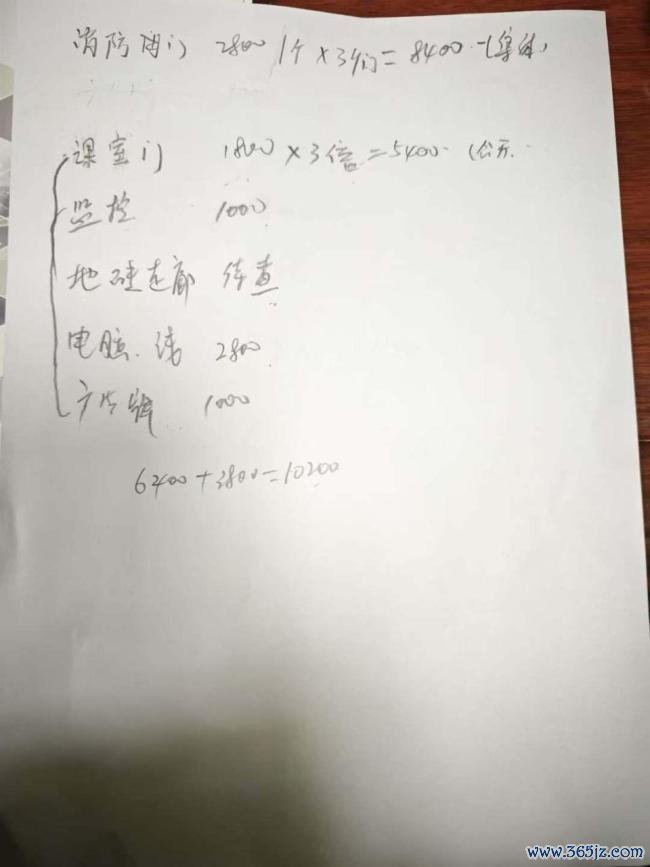 消防闸门 2800 1个×3个门=8400.-(集体)
课室门 1800×3倍=5400 (公开.
监控 1000
地砖走廊 待查
电脑.线 2800
广告牌 1000
6400+3800=10200
www.365jz.com